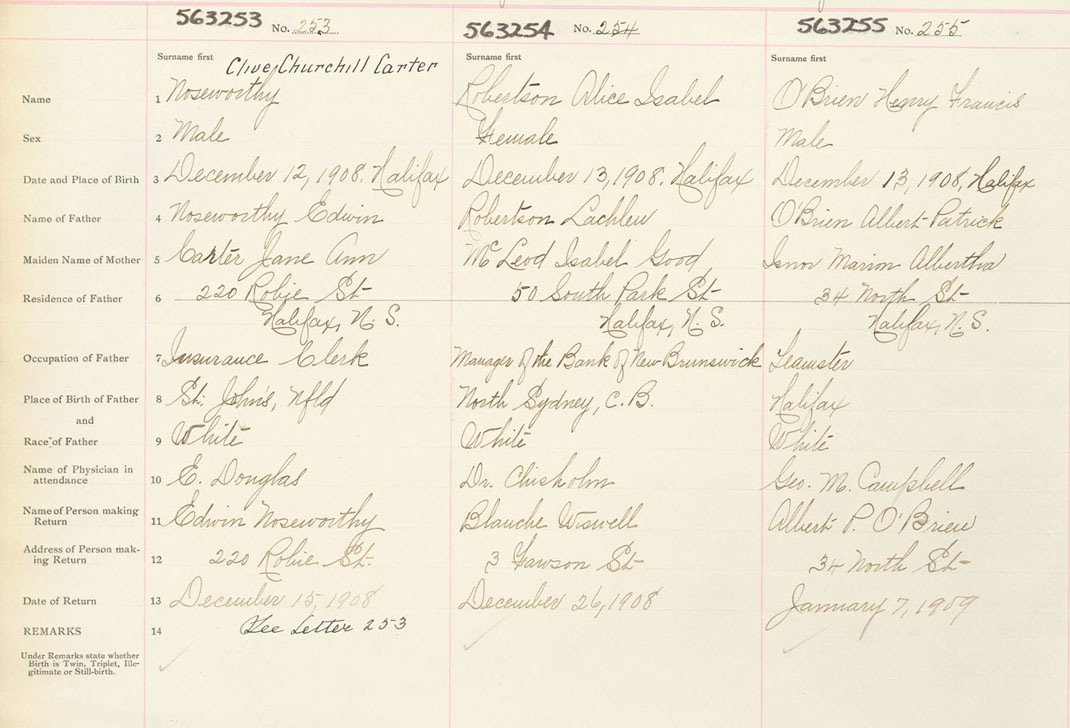 563253 No. 253 563254 No. 254 563255 No. 255
Surname first Surname first Surname first
Clive Churchill Carter
Name 1 Noseworthy Robertson Alice Isabel O'Brien Henry Francis
Sex 2 Male Female Male
Date and Place of Birth 3 December 12, 1908. Halifax December 13, 1908. Halifax December 13, 1908, Halifax
Name of Father 4 Noseworthy Edwin Robertson Lachlen O'Brien Albert Patrick
Maiden Name of Mother 5 Carter Jane Ann McLeod Isabel Good Isnor Marion Albertha
Residence of Father 6 220 Robie St 50 South Park St 34 North St
Halifax, N.S. Halifax, N.S. Halifax, N.S.
Occupation of Father 7 Insurance Clerk Manager of the Bank of New Brunswick Teamster
Place of Birth of Father 8 St. John's, Nfld North Sydney, C.B. Halifax
and
Race of Father 9 White White White
Name of Physician in
attendance 10 E. Douglas Dr. Chisholm Geo. M. Campbell
Name of Person making
Return 11 Edwin Noseworthy Blanche Wiswell Albert P. O'Brien
Address of Person mak-
ing Return 12 220 Robie St. 3 Fawson St 34 North St
Date of Return 13 December 15, 1908 December 26, 1908 January 7, 1909
REMARKS 14 See Letter 253
Under Remarks state whether
Birth is Twin, Triplet, Ille-
gitimate or Still-birth.